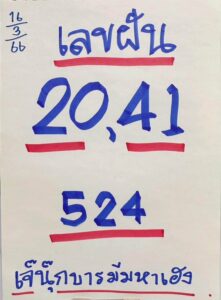 16
3
66
เลขฝัน
20,41
524
เจ๊นุ๊กบารมีมหาเฮง